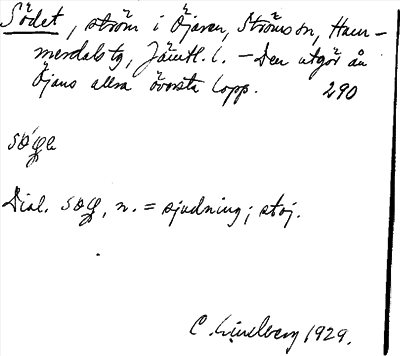 Södet, ström i Öjaren, Strömsön, Ham-
merdals tg, Jämtl. l. – Den utgör ån
Öjans allra översta lopp. 290
Dial. n. = sjudning; stoj.
C. Lindberg 1929.